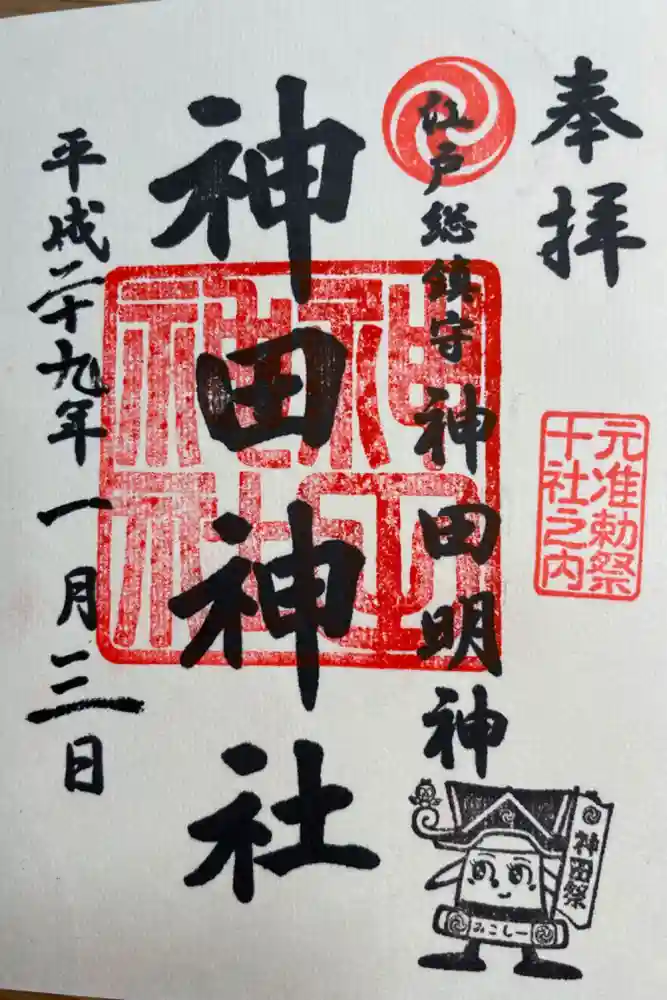 奉拝
元准勅祭
十社之内
江戸総鎮守 神田明神
神田神社
神田神社
平成二十九年一月三日
神田祭
みこしー